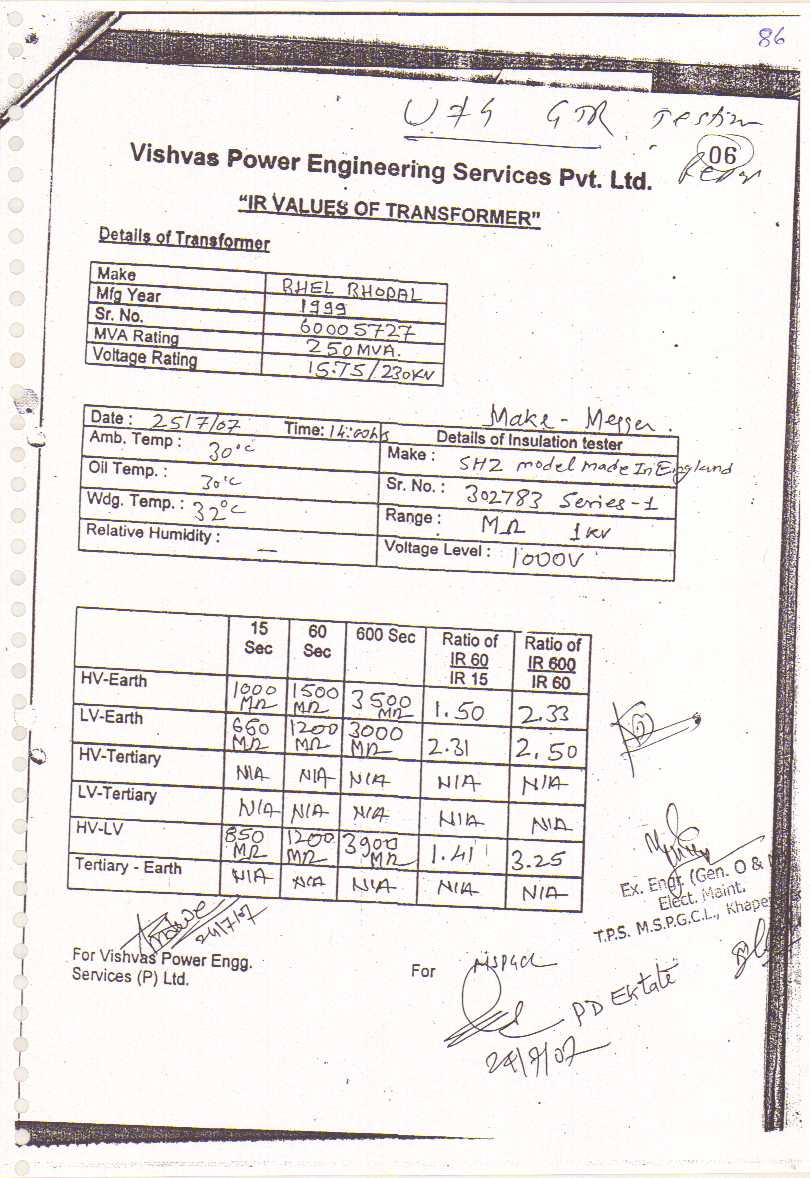 86
GTR Testing
06
Vishvas Power Engineering Services Pvt. Ltd.
"IR VALUES OF TRANSFORMER"
Details of Transformer
Make BHEL BHOPAL
Mfg Year 1999
Sr. No. 60005727
MVA Rating 250MVA.
Voltage Rating 15.75/230KV
Make - Megger.
Date : 25/7/07 Time: 14:00hrs Details of Insulation tester
Amb. Temp : 30°C Make : SH2 model made In England
Oil Temp. : 30°C Sr. No. : 302783 Series-1
Wdg. Temp. : 32°C Range : MΩ 1KV
Relative Humidity : — Voltage Level : 1000V
15 Sec 60 Sec 600 Sec Ratio of IR 60 IR 15 Ratio of IR 600 IR 60
HV-Earth 1000 MΩ 1500 MΩ 3500 MΩ 1.50 2.33
LV-Earth 1200 MΩ 3000 MΩ 2.31 2.50
HV-Tertiary N/A N/A N/A N/A N/A
LV-Tertiary N/A N/A N/A N/A N/A
HV-LV 850 MΩ 1200 MΩ 3900 MΩ 1.41 3.25
Tertiary - Earth N/A N/A N/A N/A N/A
Ex. Engr. (Gen. O &
Elect. Maint.
T.P.S. M.S.P.G.C.L., Khaper
24/7/07
For Vishvas Power Engg.
Services (P) Ltd.
For MSPGCL
PD Ektate